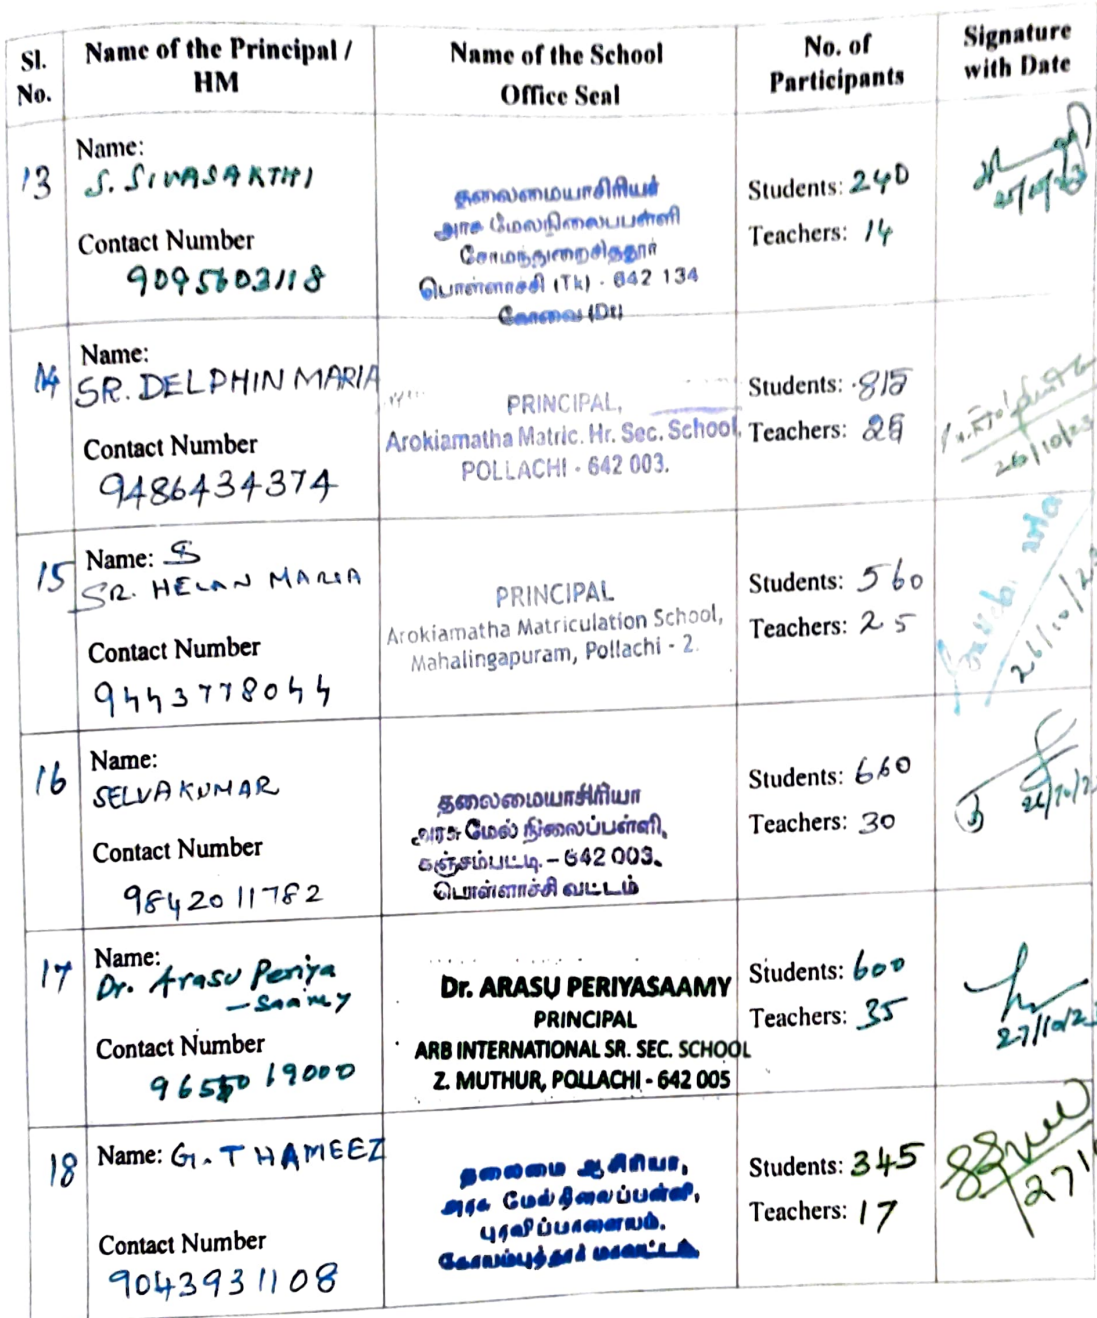 Sl. No.
Name of the Principal / HM
Name of the School Office Seal
No. of Participants
Signature with Date
13
Name:
S. SIVASAKTHI
Contact Number
9095603118
தலைமையாசிரியர்
அரசு மேலநிலைபபள்ளி
சோமந்துறைசித்தூர்
பொள்ளாச்சி (Tk) - 642 134
கோவை (Dt)
Students: 240
Teachers: 14
14
Name:
SR. DELPHIN MARIA
Contact Number
9486434374
PRINCIPAL,
Arokiamatha Matric. Hr. Sec. School,
POLLACHI - 642 003.
Students: 815
Teachers: 25
26/10/23
15
Name: S
SR. HELAN MARIA
Contact Number
9443778044
PRINCIPAL
Arokiamatha Matriculation School,
Mahalingapuram, Pollachi - 2.
Students: 560
Teachers: 25
26/10/2
16
Name:
SELVAKUMAR
Contact Number
9842011782
தலைமையாசிரியா
அரசு மேல் நிலைப்பள்ளி,
கஞ்சம்பட்டி. – 642 003.
பொள்ளாச்சி வட்டம்
Students: 660
Teachers: 30
26/10/2
17
Name:
Dr. Arasu Periya
-saamy
Contact Number
9655019000
Dr. ARASU PERIYASAAMY
PRINCIPAL
ARB INTERNATIONAL SR. SEC. SCHOOL
Z. MUTHUR, POLLACHI - 642 005
Students: 600
Teachers: 35
27/10/2
18
Name: G. THAMEEZ
Contact Number
9043931108
தலைமை ஆசிரியா,
அரசு மேல்நிலைப்பள்ளி,
புரவிப்பாளையம்.
கோயம்புத்தூர் மாவட்டம்.
Students: 345
Teachers: 17
27/